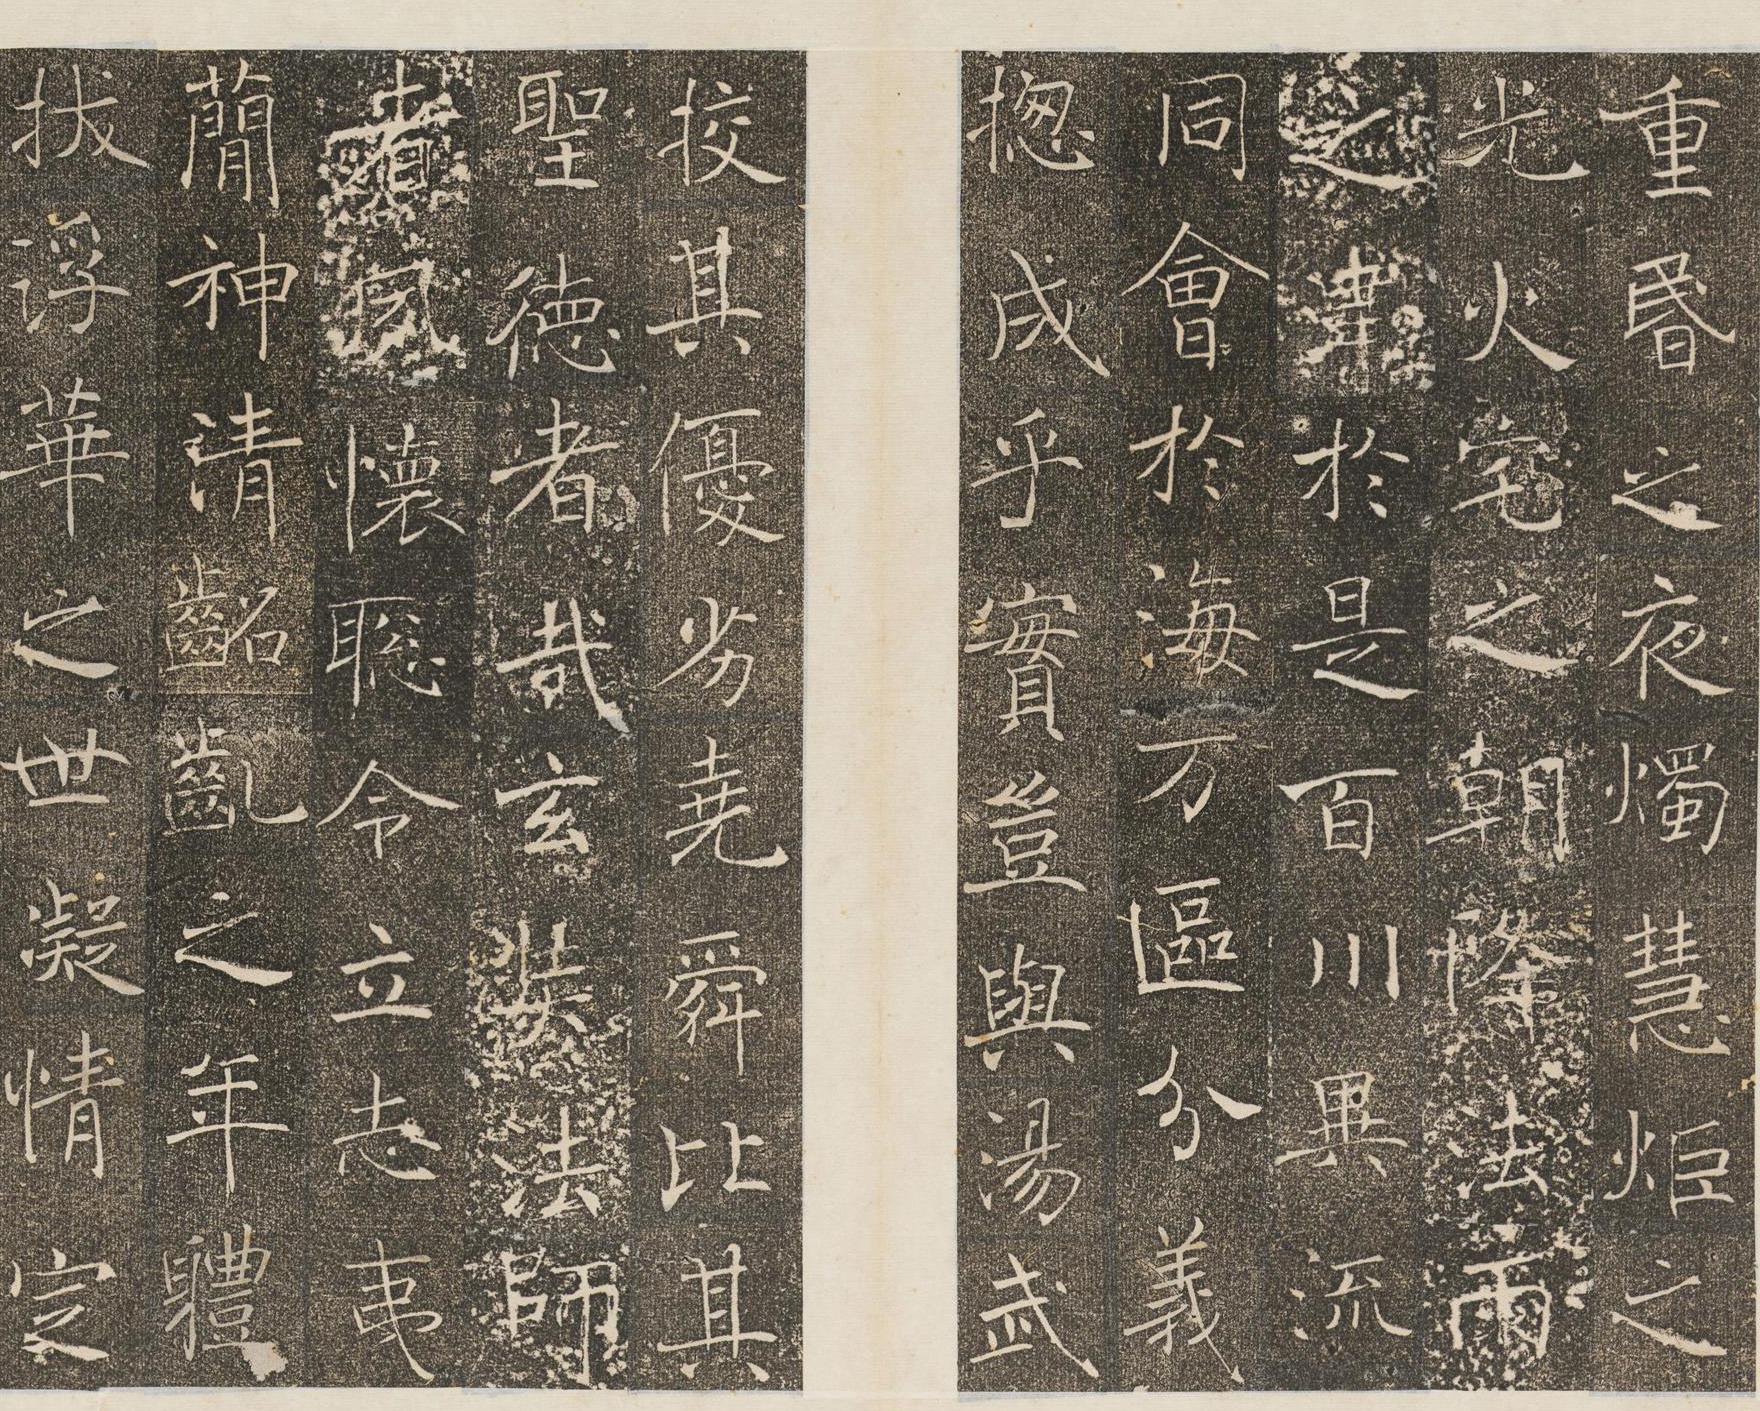 重昬之夜燭慧炬之
光火宅之朝降法雨
之澤於是百川異流
同會於海万區分義
揔成乎實豈與湯武
挍其優劣堯舜比其
聖徳者哉玄奘法師
者夙懷聡令立志夷
蕑神清齠齔之年軆
拔浮華之世凝情定